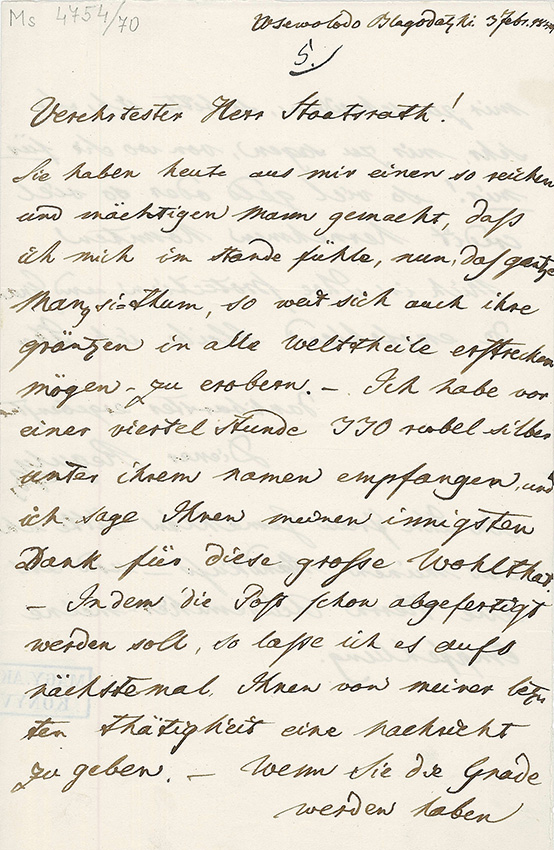 Ms 4754/70
Wsewolodo Blagodatzki. 3 Febr.
5.
Verehrtester Herr Staatsrath!
Sie haben heute aus mir einen so reichen
und mächtigen Mann gemacht, daß
ich mich im stande fühle, nun, das gantze
Manysi=thum, so weit sich auch ihre
gräntzen in alle Welttheile erstrecken
mögen – zu erobern. – Ich habe vor
einer viertel Stunde 330 rubel silber
unter ihrem namen empfangen, und
ich sage Ihnen meinen innigsten
Dank für diese grosse Wohlthat.
– Indem die Post schon abgefertigt
werden soll, so lasse ich es aufs
nächstemal, Ihnen von meiner letz-
ten thätigkeit eine nachricht
zu geben. – Wenn Sie die Gnade
werden haben